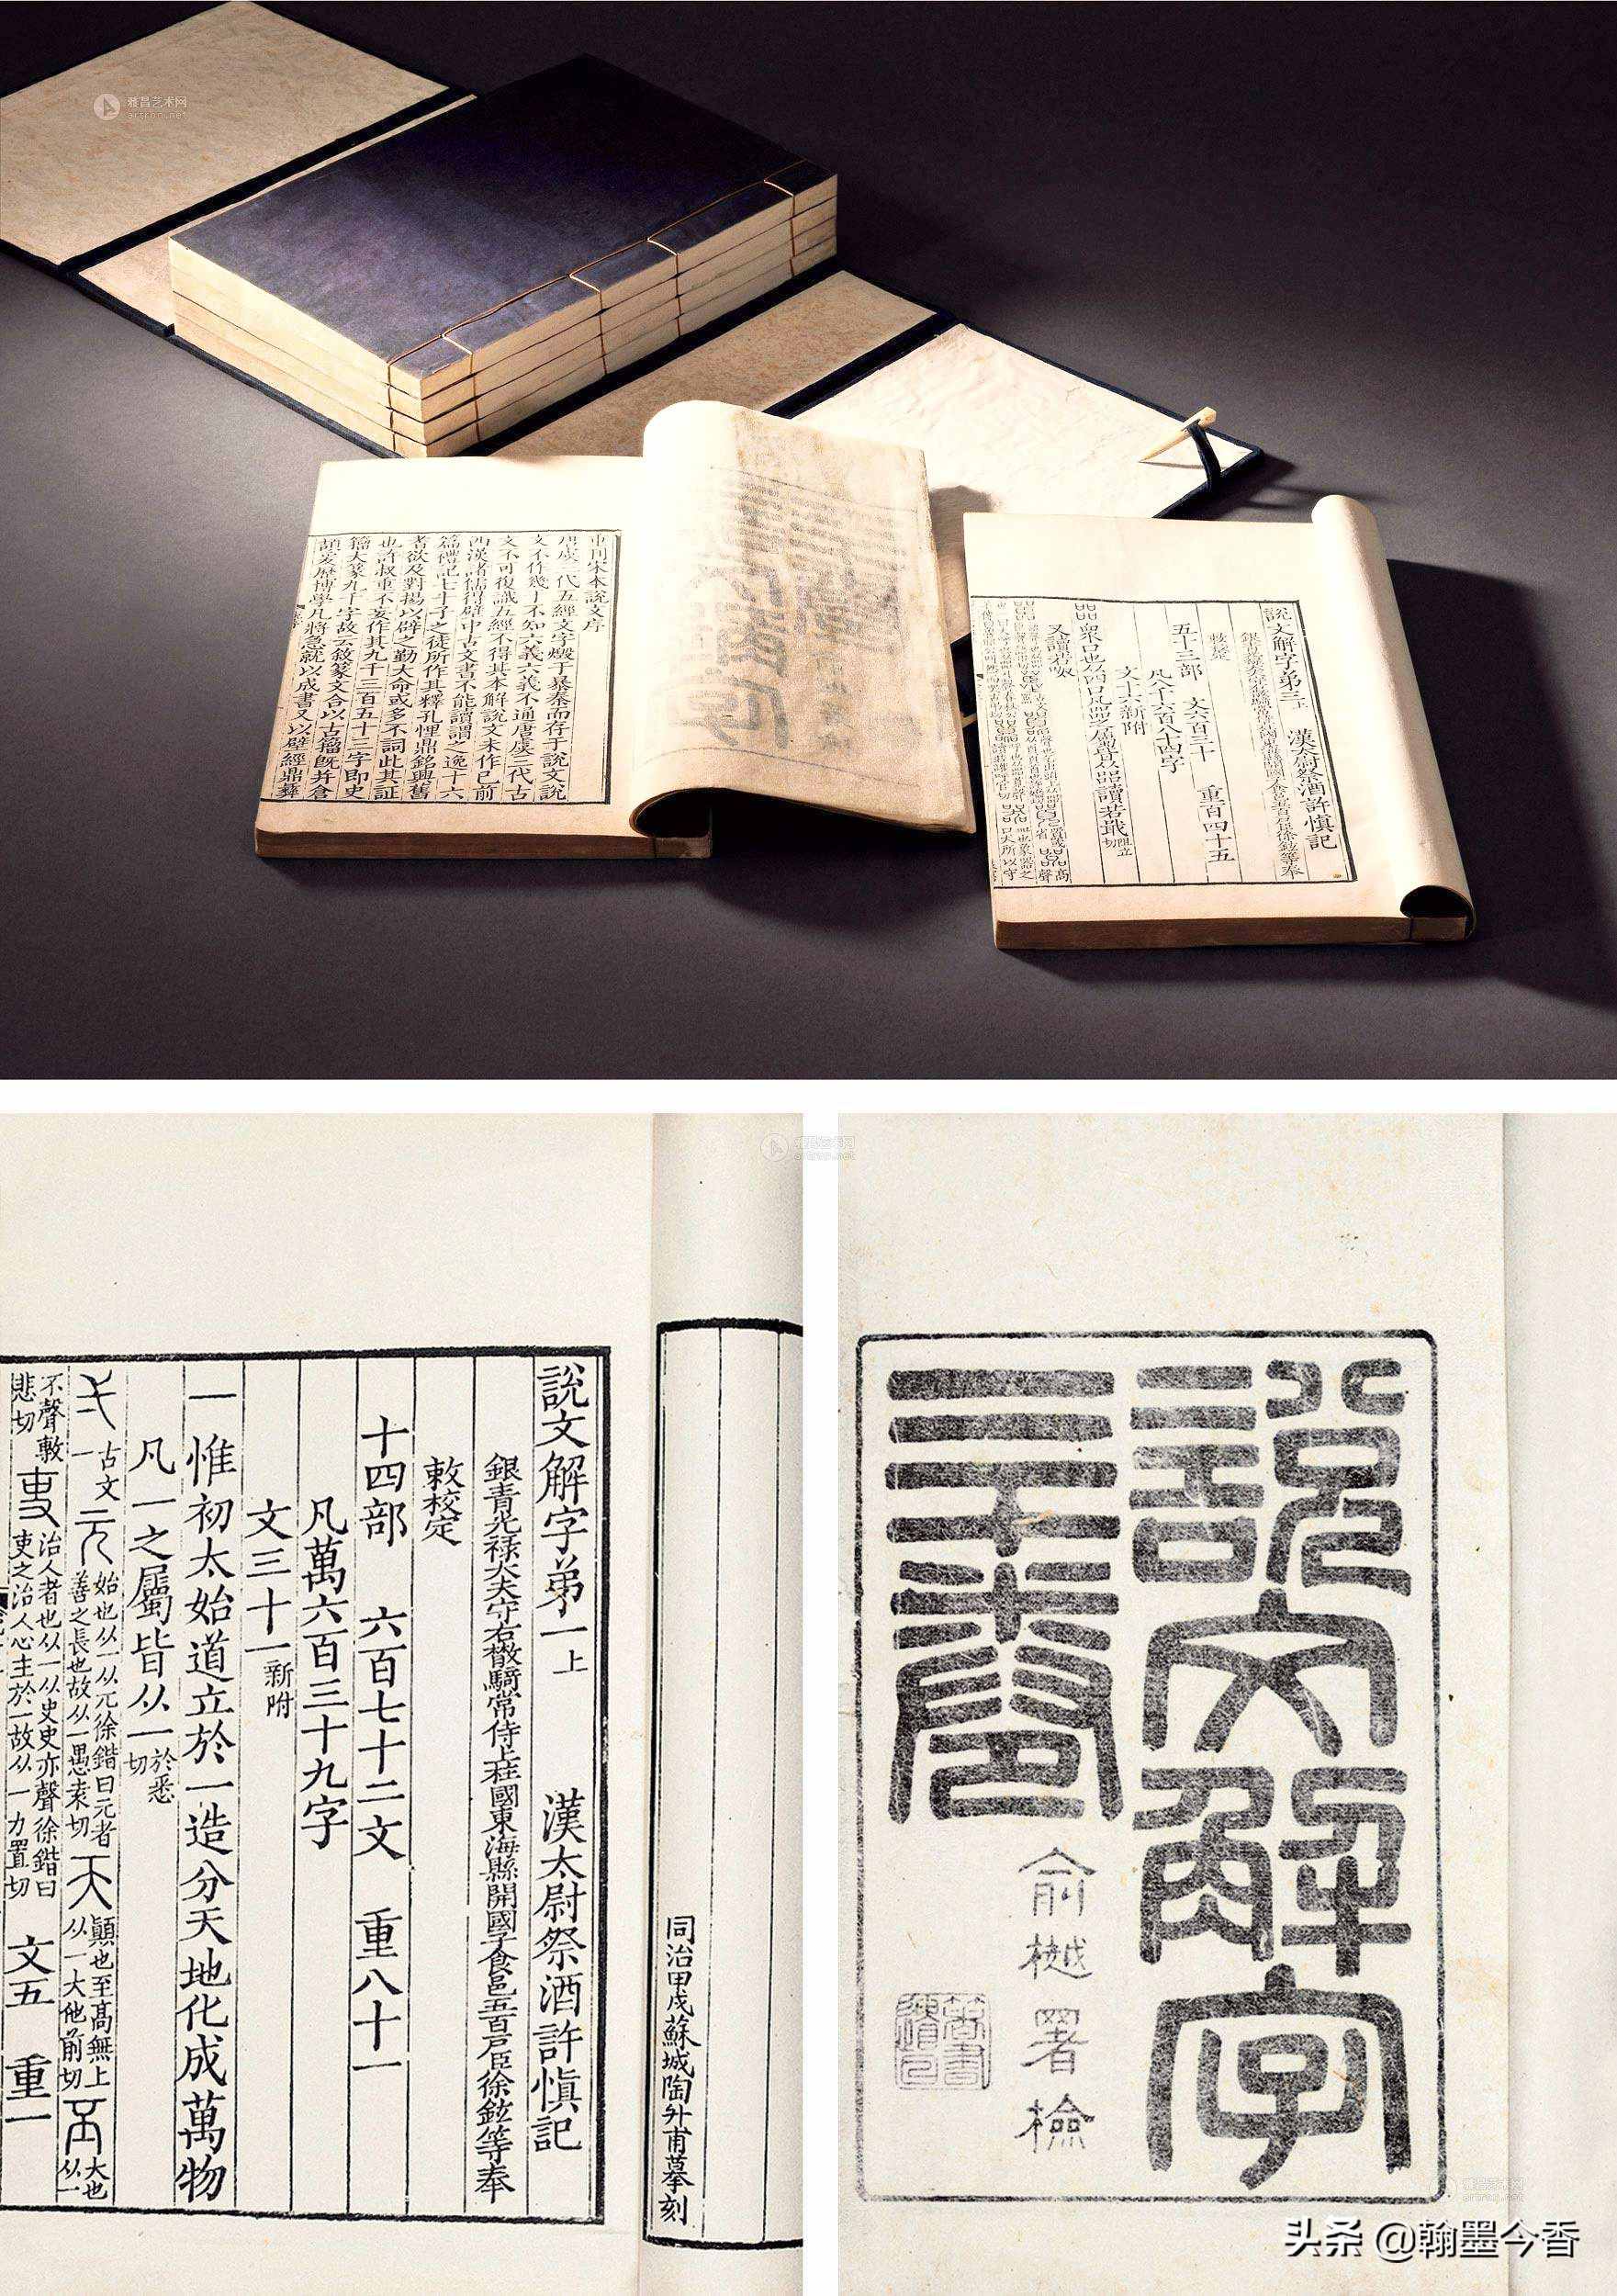 雅昌艺术网
artron.net
重刊宋本說文序
唐虞三代五經文字燬于暴秦而存于說文說
文不作幾于不知六義六義不通唐虞三代古
文不可復識五經不得其本解說文未作已前
西漢諸儒得壁中古文書不能讀謂之逸十六
篇禮記七十子之徒所作其釋孔悝鼎銘興舊
耆欲及對揚以辟之勤大命或多不詞此其証
也許叔重不妄作其九千三百五十三字即史
籀大篆九千字故云敘篆文合以古籀既并倉
頡爰歷博學凡將急就以成書又以壁經鼎彝
說文解字弟三上 漢太尉祭酒許慎記
銀青光祿大夫守右散騎常侍上柱國東海縣開國子食邑五百戶臣徐鉉等奉
敕校定
五十三部 文六百三十 重百四十五
凡八千六百八十四字
文十六新附
㗊 衆口也从四口凡㗊之屬皆从㗊讀若戢阻立切
又讀若呶
artron.net
說文解字弟一上 漢太尉祭酒許慎記
銀青光祿大夫守右散騎常侍上柱國東海縣開國子食邑五百戶臣徐鉉等奉
敕校定
十四部 六百七十二文 重八十一
凡萬六百三十九字
文三十一新附
一 惟初太始道立於一造分天地化成萬物
凡一之屬皆从一於悉切
弌 古文一 元 始也从一从兀徐鍇曰元者善之長也故从一愚袁切 天 顚也至高無上从一大他前切 丕 大也从一
不聲敷悲切 吏 治人者也从一从史史亦聲徐鍇曰吏之治人心主於一故从一力置切 文五 重一
同治甲戌蘇城陶升甫摹刻
說文解字
三十卷
俞樾署檢
头条 @翰墨今香